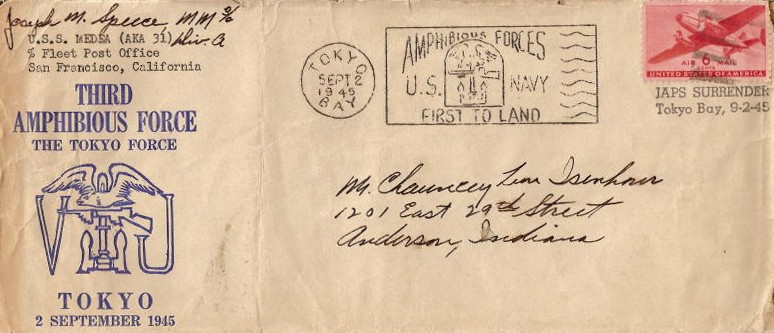 Joseph M. Speece MM 3/c
U.S.S. MEDEA (AKA 31) Div. A
% Fleet Post Office
San Francisco, California
THIRD
AMPHIBIOUS FORCE
THE TOKYO FORCE
V U
TOKYO
2 SEPTEMBER 1945
TOKYO
SEPT 2
1945
BAY
AMPHIBIOUS FORCES
U.S. NAVY
FIRST TO LAND
AIR 6 MAIL
CENTS
UNITED STATES OF AMERICA
JAPS SURRENDER
Tokyo Bay, 9-2-45
Mr. Chauncey Isenhour
1201 East 29th Street
Anderson, Indiana